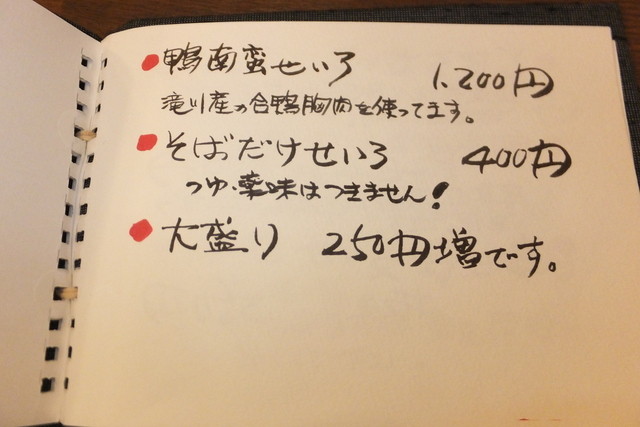 鴨南蛮せいろ 1,200円
滝川産の合鴨胸肉を使ってます。
そばだけせいろ 400円
つゆ・薬味はつきません!
大盛り 250円増です。